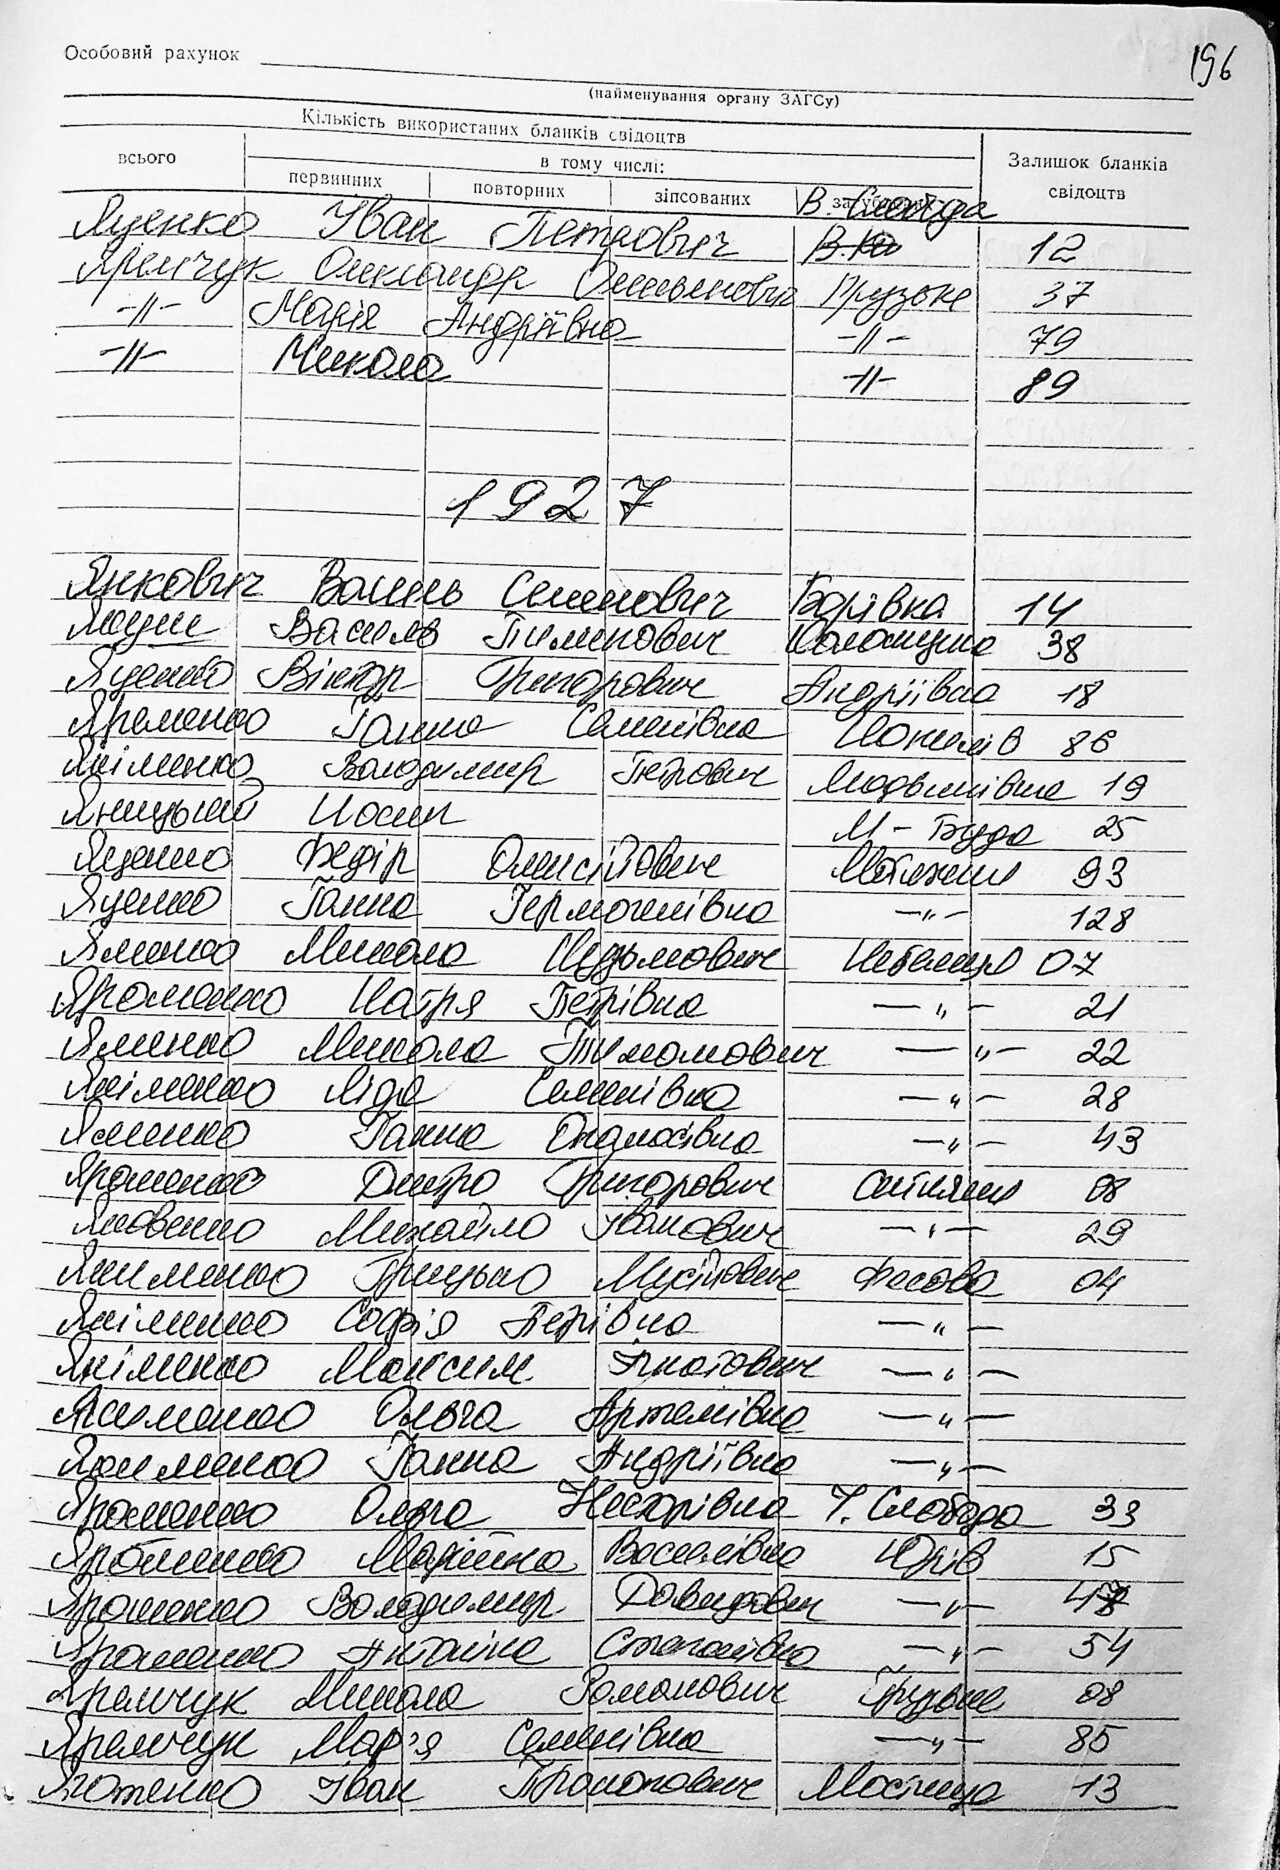 196
Особовий рахунок
(найменування органу ЗАГСу)
Кількість використаних бланків свідоцтв
всього
в тому числі:
Залишок бланків свідоцтв
первинних повторних зіпсованих
В. Слобода
Яценко Іван Петрович 12
Яремчук Олександр Омелянович Грузьке 37
-//- Марія Андріївна -//- 79
-//- Микола -//- 89
1927
Янкович Василь Семенович Борівка 14
Василь Пименович 38
Яценко Віктор Григорович Андріївка 18
Яременко Ганна Семенівна 86
Якіменко Володимир Петрович 19
Яницький Йосип М-Буда 25
Яценко Федір Олексійович Мотижин 93
Яценко Ганна Гермогенівна -"- 128
Яменко Микола Кузьмович Небелиця 07
Яроменко Натря Петрівна -"- 21
Яменко Микола Тимомович -"- 22
Якіменко Ліда Семенівна -"- 28
Яменко Ганна Опанасівна -"- 43
Яроменко Дмитро Григорович Ситняки 08
Яковенко Михайло Іванович -"- 29
Якименко Грицько Мусійович Фасова 04
Якіменко Софія Петрівна -"-
Якіменко Максим Гнатович -"-
Якименко Ольга Артемівна -"-
Якименко Ганна Андріївна -"-
Яроменко Ольга Несторівна Ч. Слобода 33
Марійка Василівна Юрів 15
Ярошенко Володимир Давидович -"-
Яроменко Антаніна Степанівна -"- 54
Яремчук Микола Романович Грузьке 08
Яремчук Мар'я Семенівна -"- 85
Іван Прокопович Мостище 13